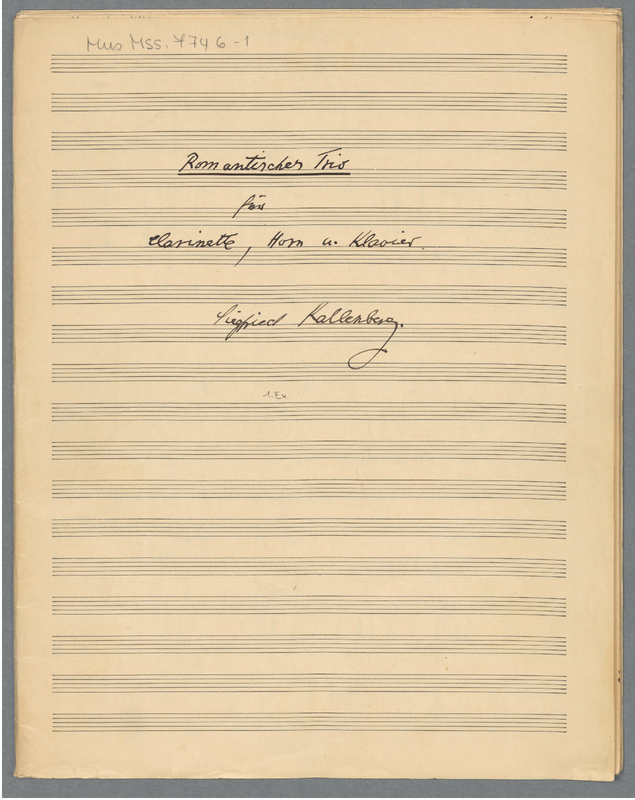 Mus Mss. 7746-1
Romantisches Trio
für
Clarinette, Horn u. Klavier.
Siegfried Kallenberg.
1. Ex